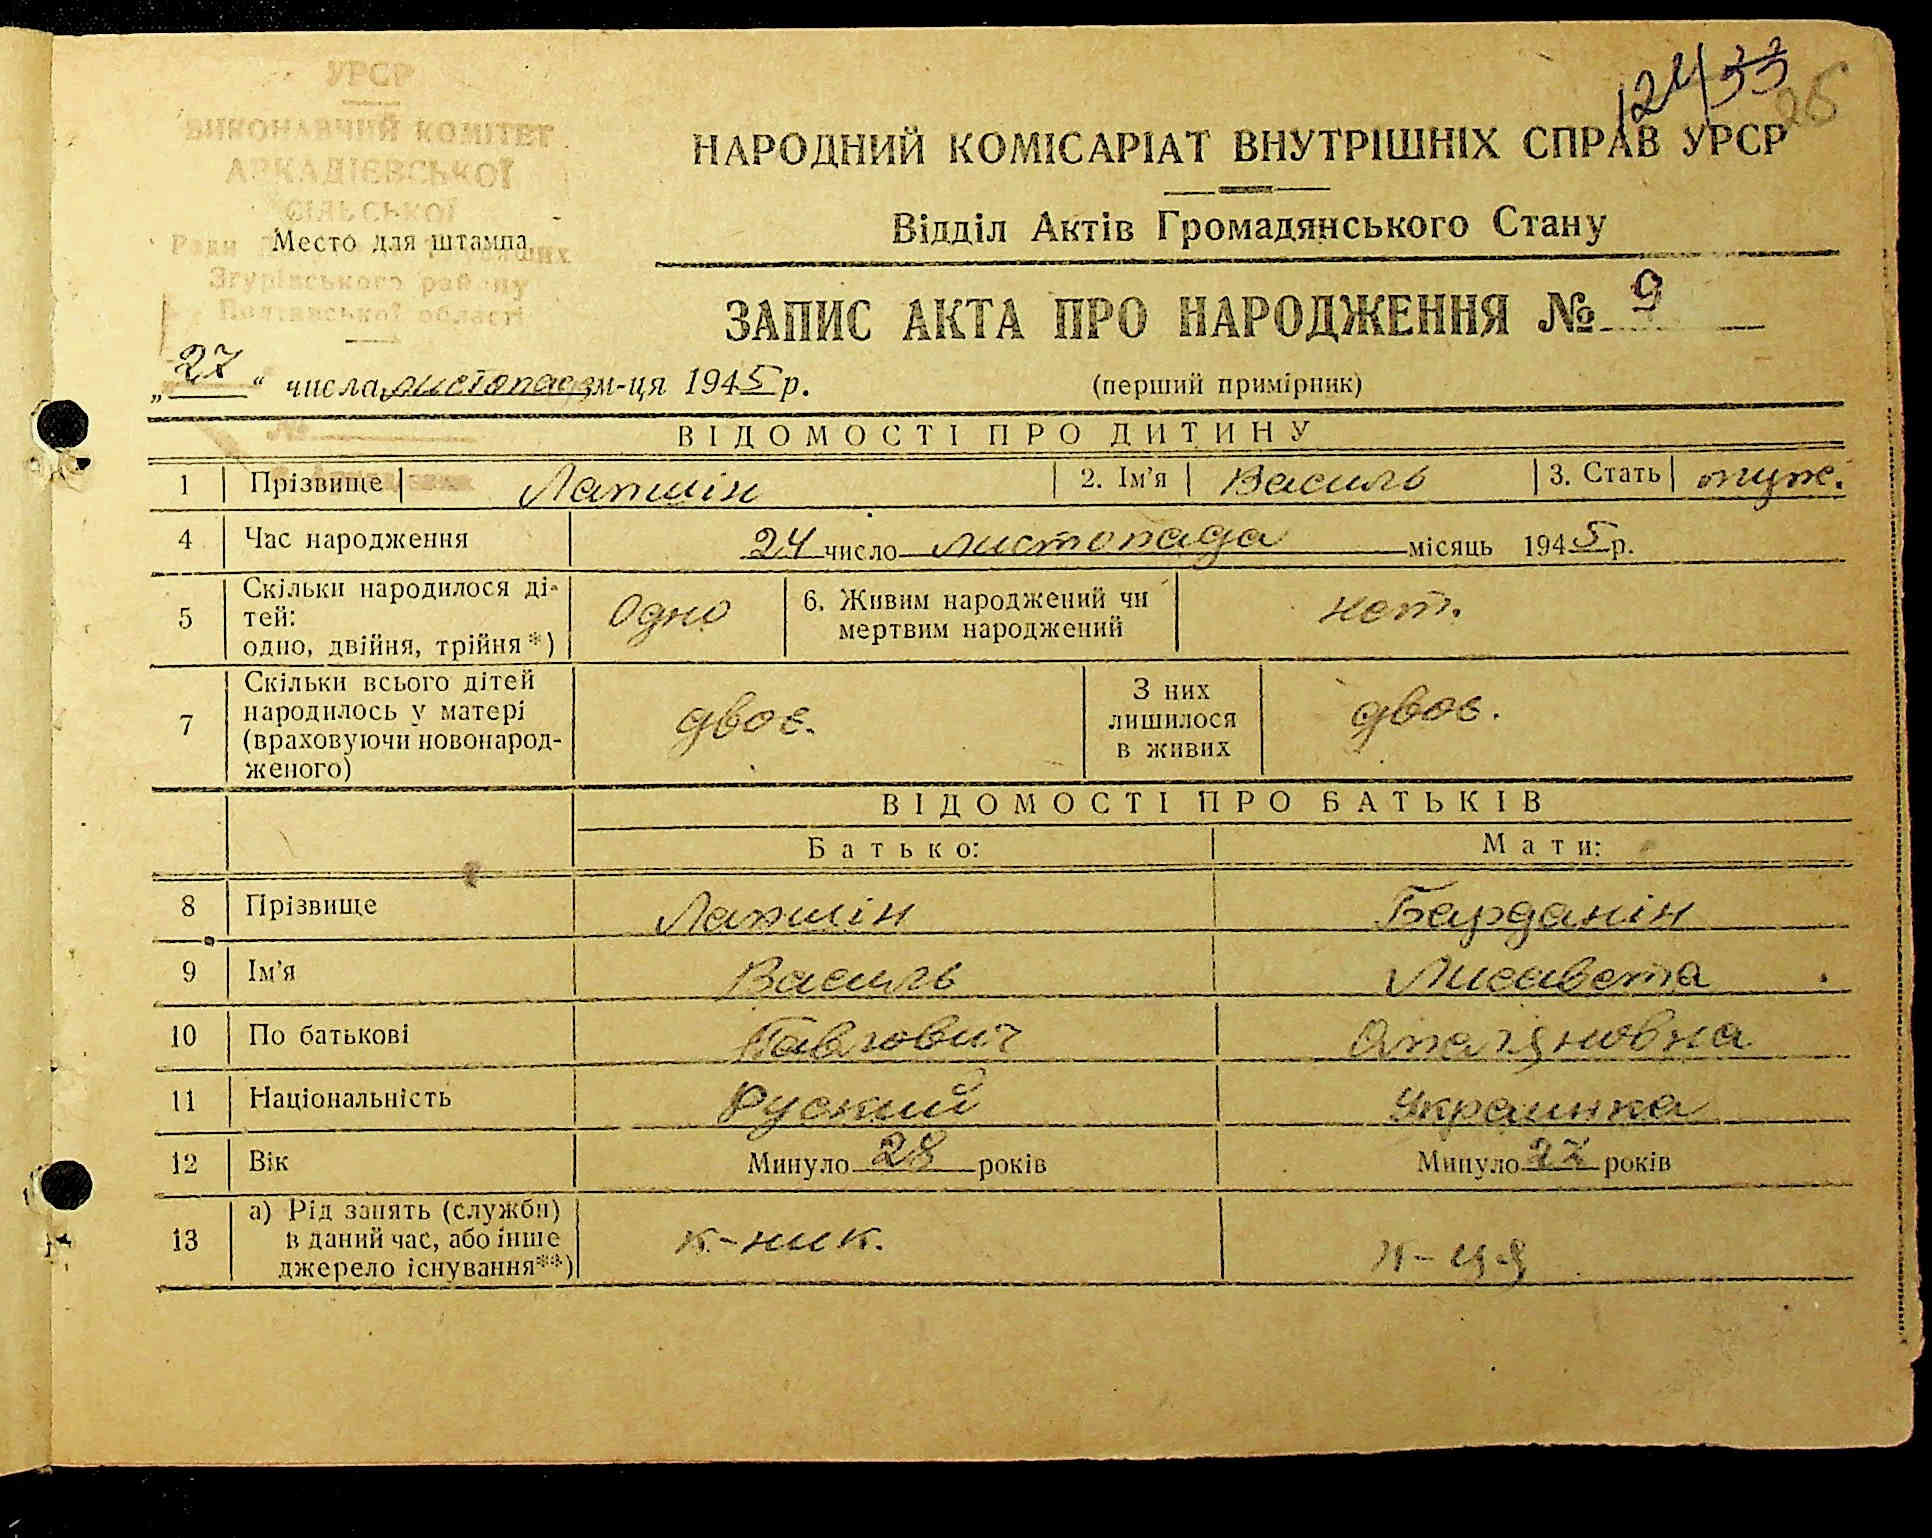 УРСР
ВИКОНАВЧИЙ КОМІТЕТ
АРКАДІЄВСЬКОЇ
СІЛЬСЬКОЇ
Ради
Згурівського району
Полтавської області
Место для штампа
124/33
НАРОДНИЙ КОМІСАРІАТ ВНУТРІШНІХ СПРАВ УРСР
Відділ Актів Громадянського Стану
ЗАПИС АКТА ПРО НАРОДЖЕННЯ № 9
„27“ числа листопада м-ця 1945 р. (перший примірник)
ВІДОМОСТІ ПРО ДИТИНУ
1 Прізвище Лапшін 2. Ім'я Василь 3. Стать муж.
4 Час народження 24 число листопада місяць 1945 р.
5 Скільки народилося ді-
тей:
одно, двійня, трійня *) Одно 6. Живим народжений чи
мертвим народжений нет.
7 Скільки всього дітей
народилось у матері
(враховуючи новонарод-
женого) двоє. З них
лишилося
в живих двоє.
ВІДОМОСТІ ПРО БАТЬКІВ
Батько: Мати:
8 Прізвище Лапшін
9 Ім'я Василь Лисавета
10 По батькові Павлович
11 Національність Руский Украинка
12 Вік Минуло 28 років Минуло 27 років
13 а) Рід занять (служби)
в даний час, або інше
джерело існування **) к-ник. к-ця